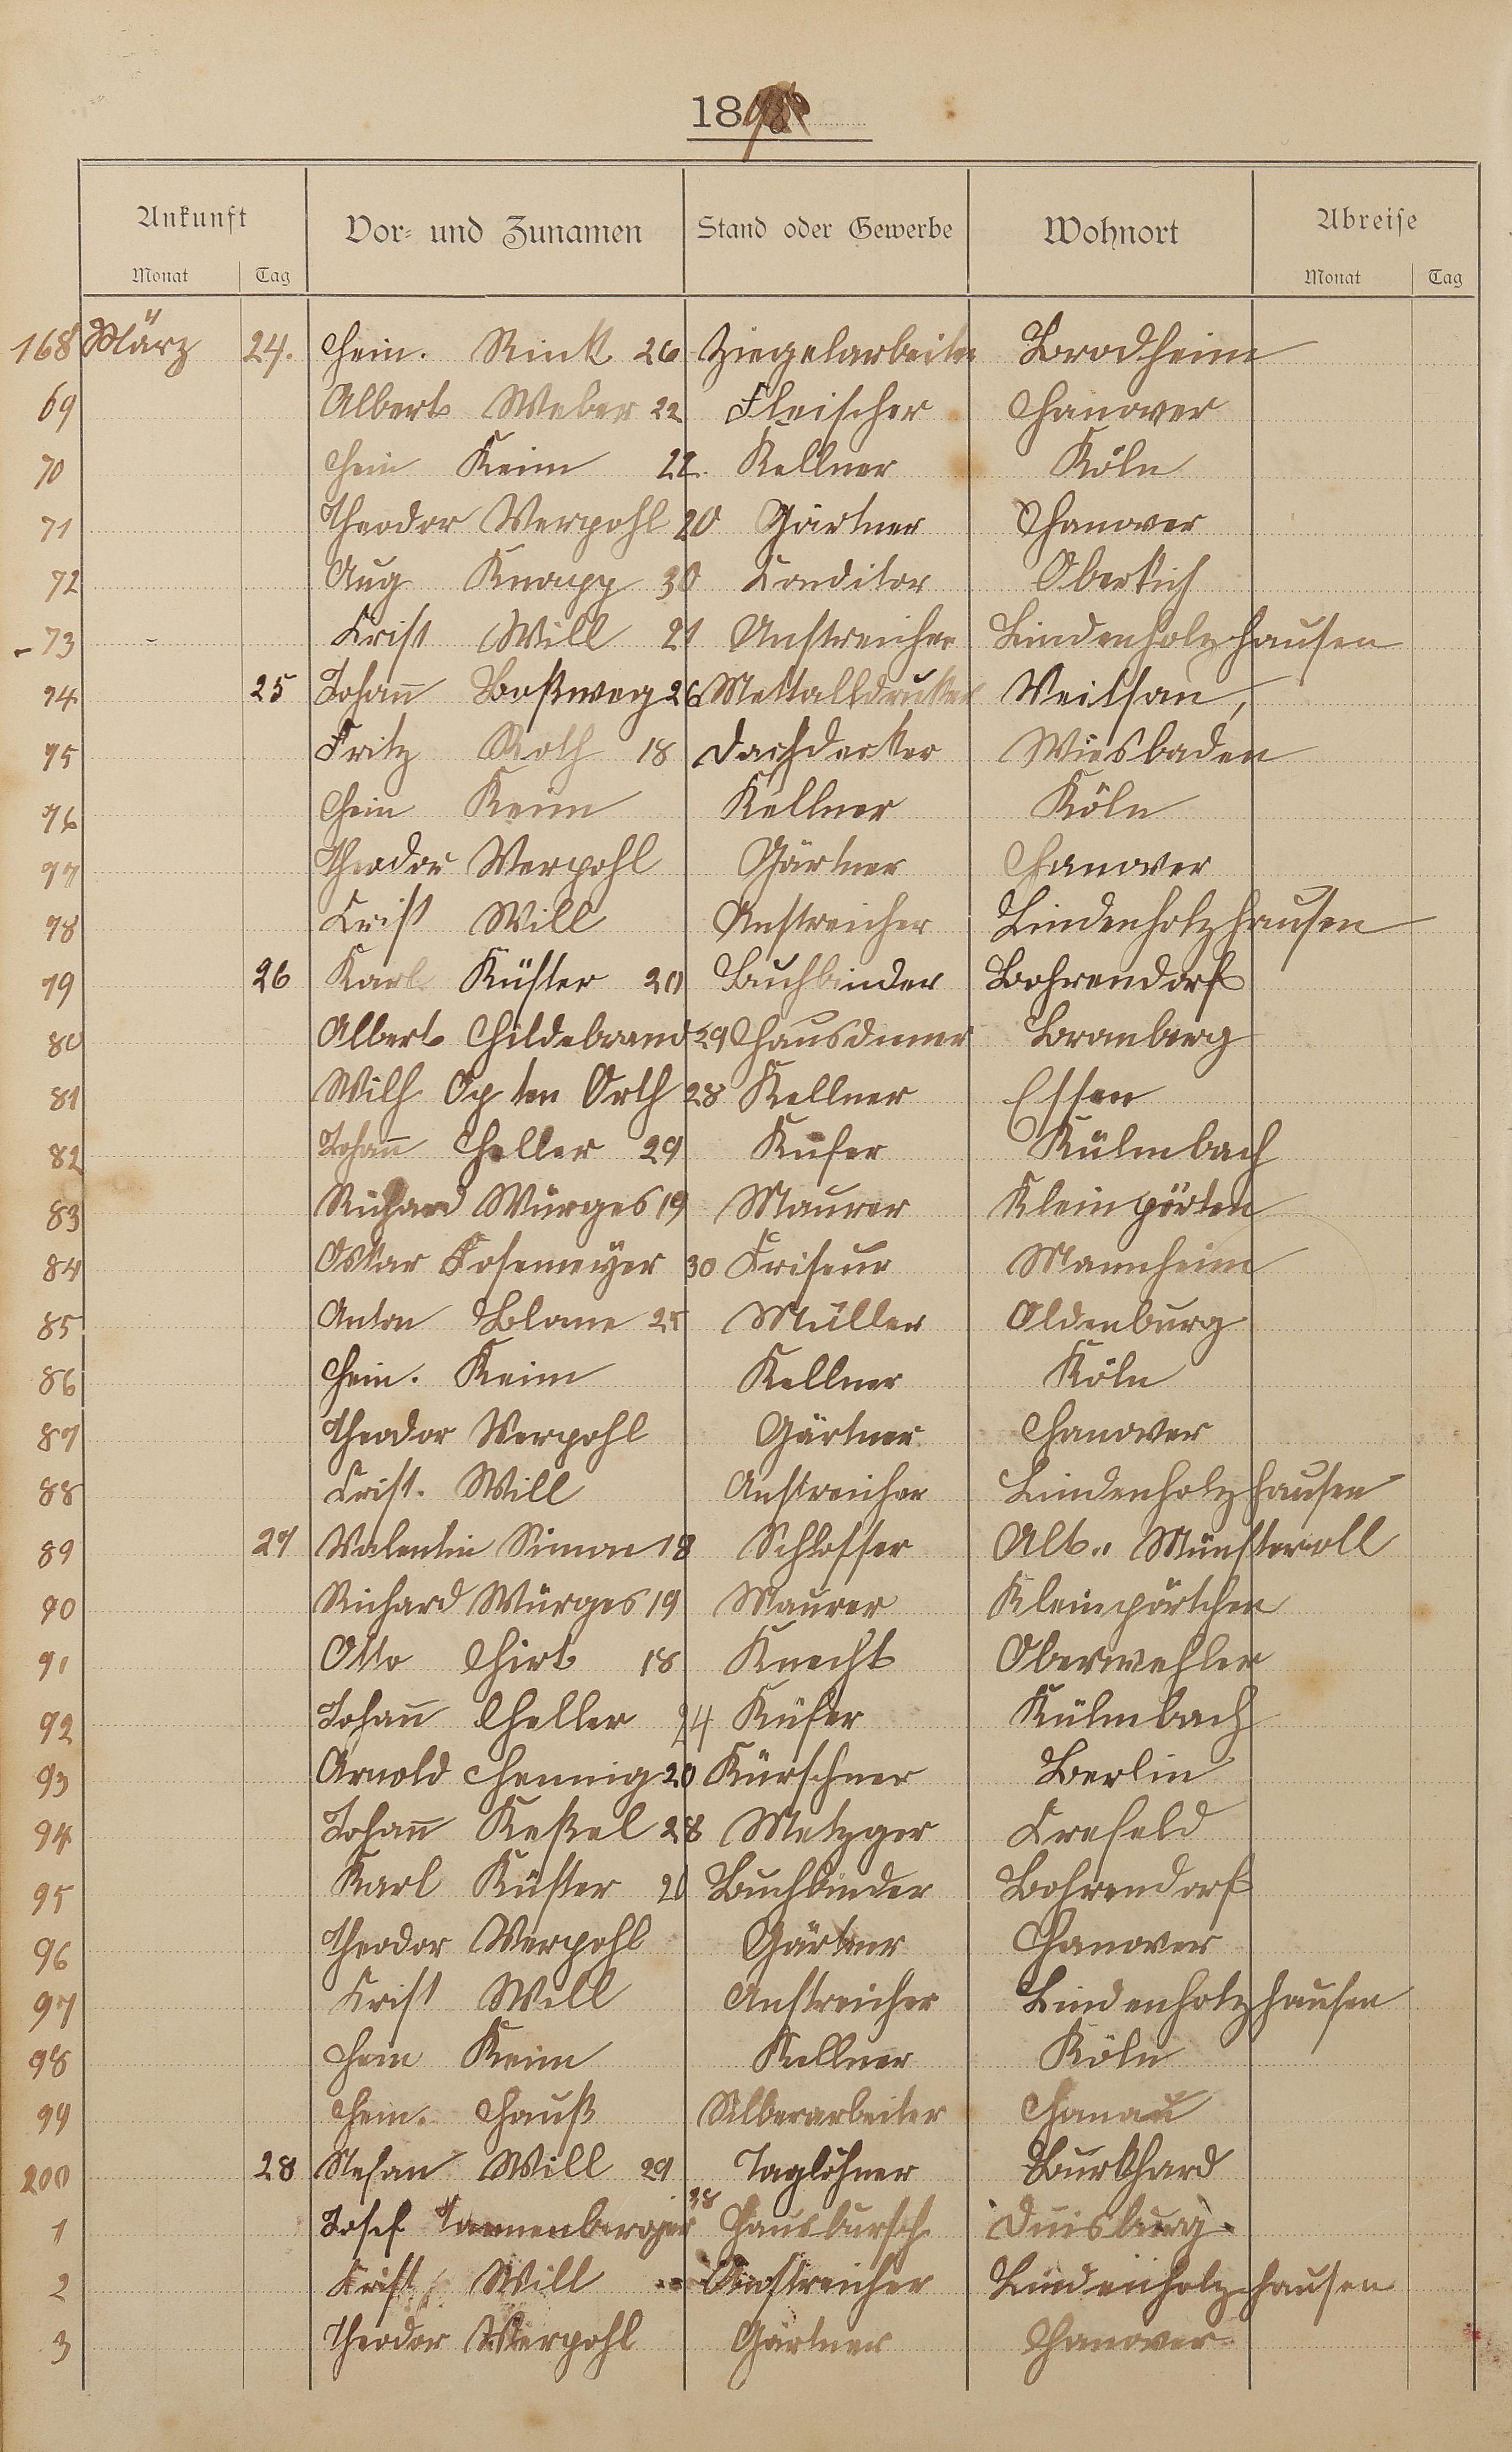 18
Ankunft Vor- und Zunamen Stand oder Gewerbe Wohnort Abreise
Monat Tag Monat Tag
168 März 24. Hein. Rink 26 Ziegelarbeiter Brodheim
69 Albert Weber 22 Fleischer Hanover
70 Hein Keim 22. Kellner Köln
71 Theodor Werpohl 20 Gärtner Hanover
72 Aug Knapp 30 Conditor Oberkich
- 73 Krist Will 21 Anstreicher Lindenholzhausen
74 25 Johann Boßweg 26 Mettalldruker
75 Fritz Roth 18 Dachdecker Wiesbaden
76 Hein Keim Kellner Köln
77 Theodor Werpohl Gärtner Hanover
78 Krist Will Anstreicher Lindenholzhausen
79 26 Karl Küster 20 Buchbinder Bohrendorf
80 Albert Hildebrand 29 Hausdiener Bromberg
81 Wilh Op ten Orth 28 Kellner Essen
82 Johann Heller 29 Küfer Külmbach
83 Richard Würges 19 Maurer Kleinpörten
84 Oskar Fosemeyer 30 Friseur Mannheim
85 Anton Blome 25 Müller Oldenburg
86 Hein. Keim Kellner Köln
87 Theodor Werpohl Gärtner Hanover
88 Krist. Will Anstreicher Lindenholzhausen
89 27 Valentin Simon 18 Schlosser Alt-Münsteroll
90 Richard Würges 19 Maurer Kleinpörtchen
91 Otto Hirt 18 Knecht Oberwehler
92 Johann Heller 24 Küfer Külmbach
93 Arnold Hennig 20 Kürschner Berlin
94 Johann Keßel 28 Metzger Crefeld
95 Karl Küster 20 Buchbinder Bohrendorf
96 Theodor Werpohl Gärtner Hanover
97 Krist Will Anstreicher Lindenholzhausen
98 Hein Keim Kellner Köln
99 Hein. Hauß Silberarbeiter Hanau
200 28 Stefan Will 29 Taglöhner Burkhard
1 Josef Tannenberger 38 Hausbursch Duisburg
2 Krist Will Anstreicher Lindenholzhausen
3 Theodor Werpohl Gärtner Hanover